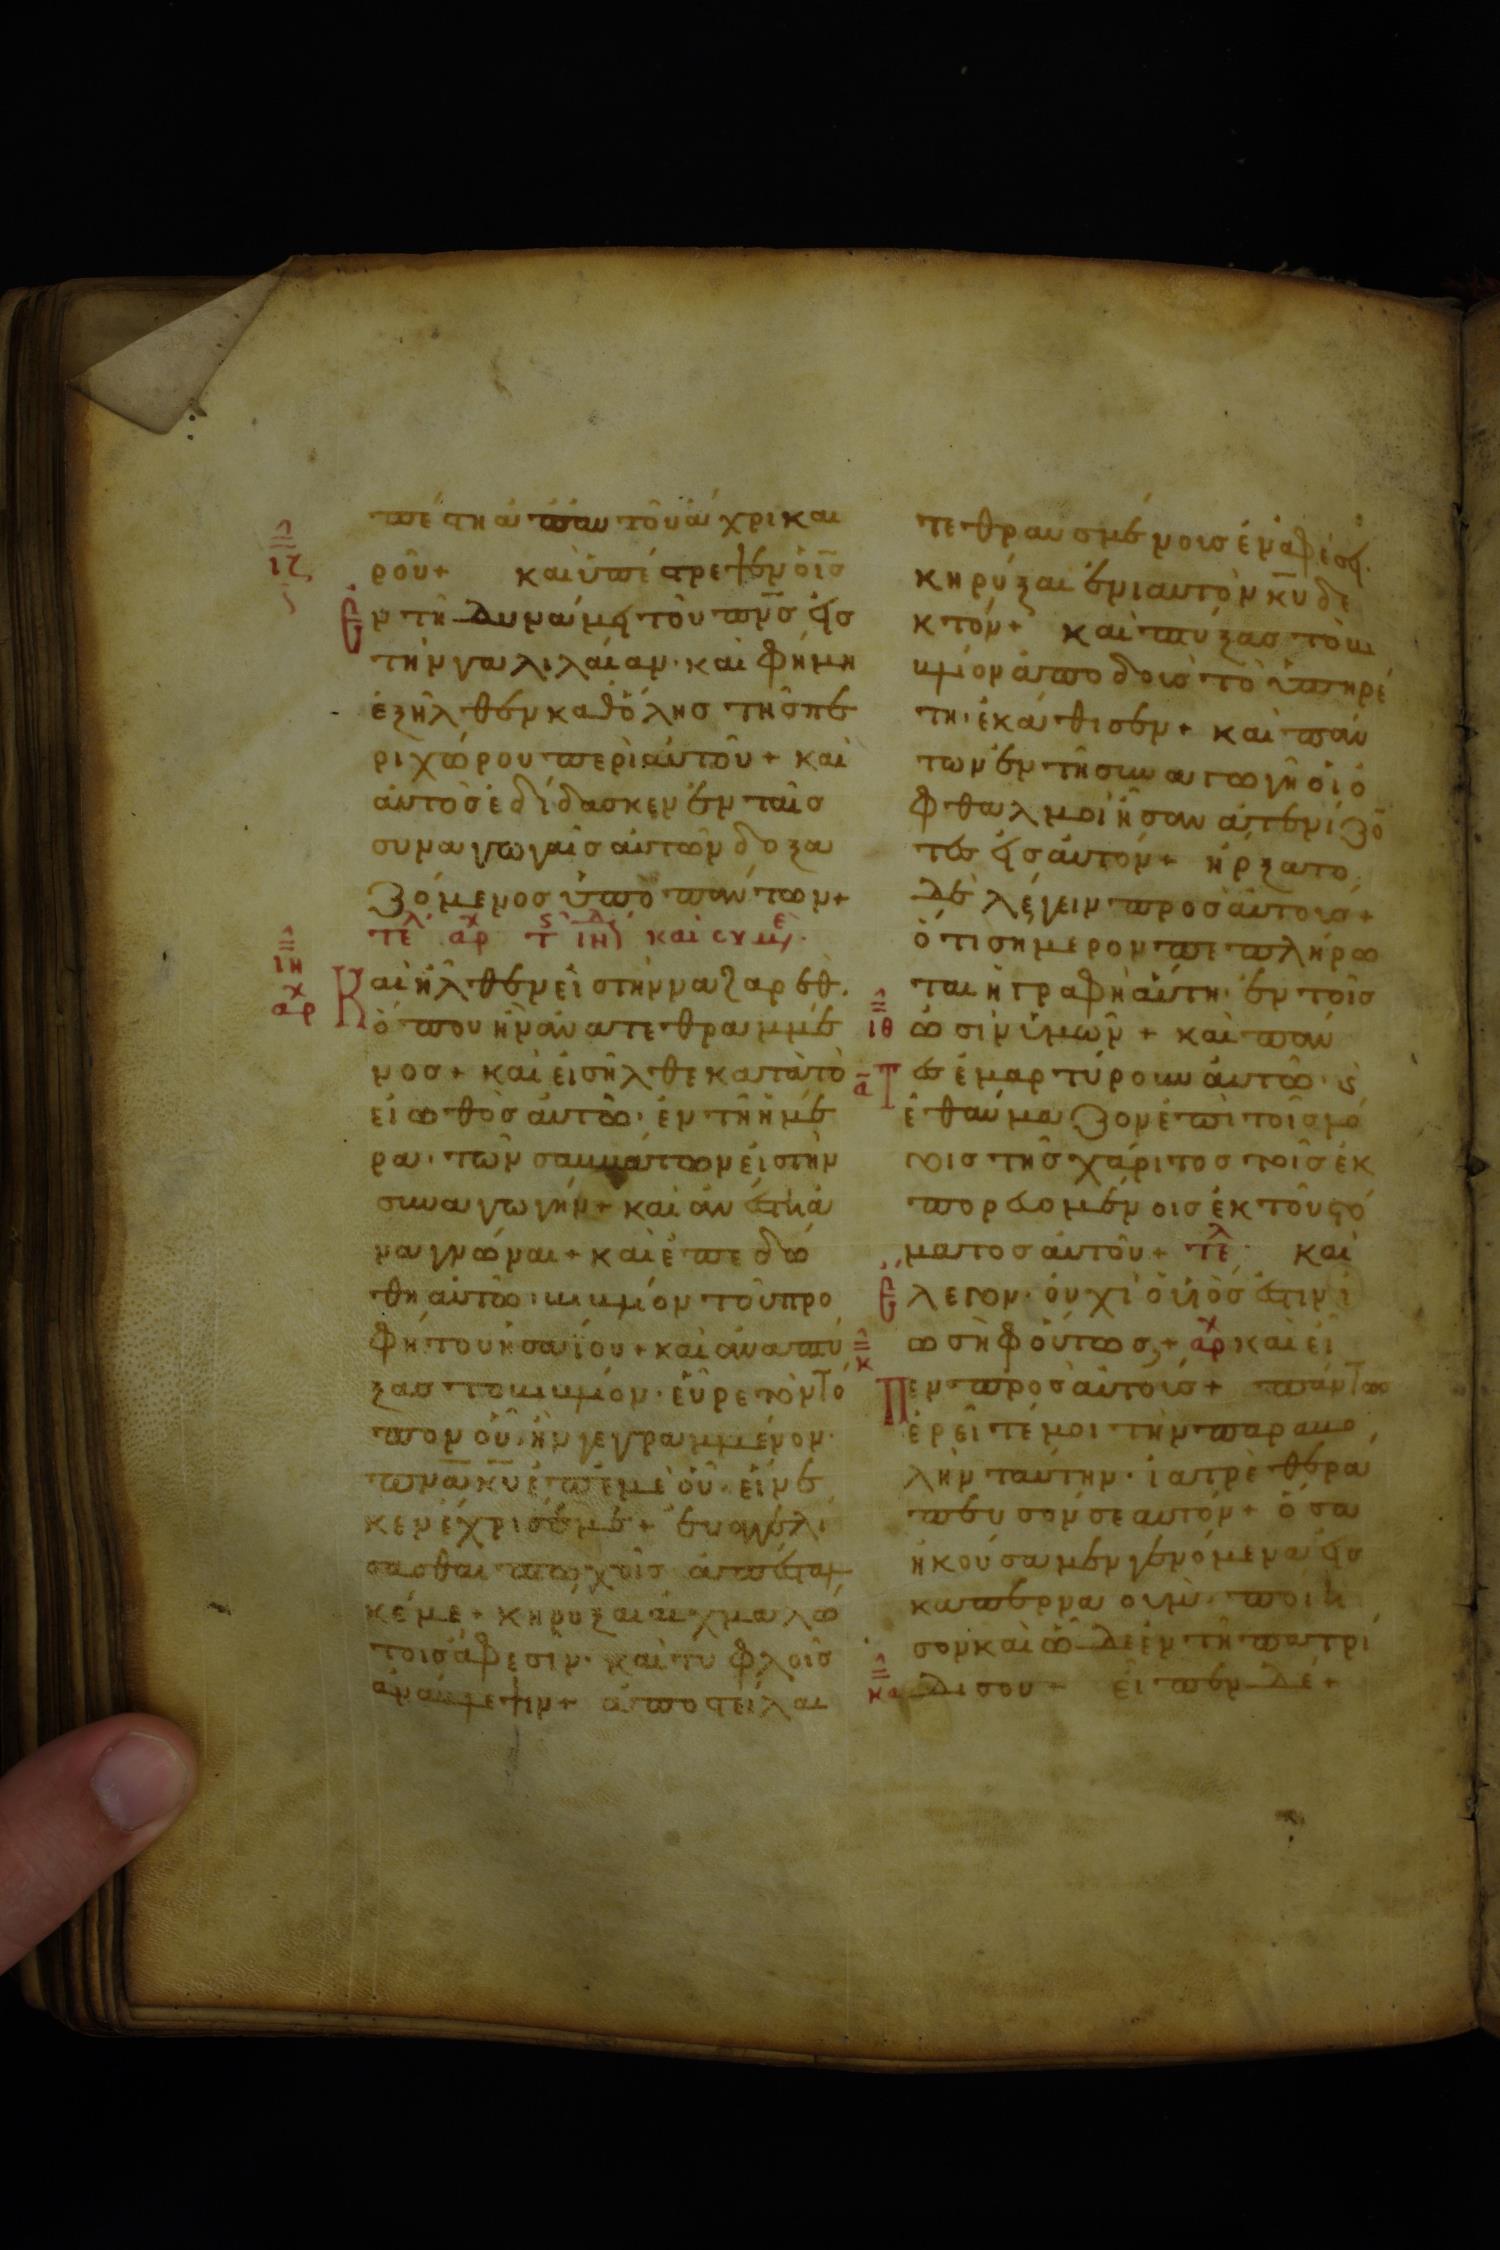 ιζ
πέστη ἀπ αυτοῦ ἀχρι και
ροῦ + και ὑπέστρεψεν ὁ ις̅
Εν τῆ δυναμει τοῦ πν̅σ εισ
τὴν γαλιλαίαν· και φήμη
ἐξῆλθεν καθ ὅλησ τῆσ πε
ριχώρου περι ἀυτοῦ + και
ἀυτὸσ ἐδίδασκεν ἐν ταῖσ
συναγωγαῖσ ἀυτῶν δοξα
ζόμενοσ ὑπὸ παντων +
τελ αρχ
ιη
αρχ
Και ἦλθεν εἰσ τὴν ναζαρεθ.
ὁπου ἦν ἀνατεθραμμε
νοσ + και εἰσῆλθε κατὰ τὸ
εἰωθὸσ ἀυτῶ· ἐν τῆ ἡμε
ρα· τῶν σαββάτων εἰσ τὴν
συναγωγήν + και ἀνέστη ἀ
ναγνῶναι + και ἐπεδω
θη ἀυτῶ· βιβλίον τοῦ προ
φήτου ἡσαΐου + και ἀναπτύ
ξασ το βιβλίον· εὗρε τὸν το
πον οὗ ἦν γεγραμμένον·
πν̅α κυ̅ ἐπ ἐμὲ οὗ εἵνε
κεν ἐχρισέ με + ευαγγελι
σασθαι πτωχοῖσ ἀπέσταλ
κέ με + κηρυξαι αἰχμαλώ
τοισ ἀφεσιν· και τυφλοῖσ
ἀνάβλεψιν + ἀποστεῖλαι
τεθραυσμένοισ ἐν ἀφέσει.
κηρύξαι ἐνιαυτὸν κυ̅ δε
κτόν + και πτύξασ τὸ βι
βλίον ἀποδοὺσ τὸ ὑπηρέ
τη· ἐκάθισεν + και παν
των ἐν τῆ συναγωγῆ οἱ ὀ
φθαλμοὶ ἦσαν ἀτενίζο
τεσ εισ ἀυτόν + ἤρξατο
δὲ λέγειν προσ ἀυτουσ +
ὁτι σήμερον πεπλήρω
ται ἡ γραφὴ ἁύτη· ἐν τοῖσ
ιθ
ὠσὶν ὑμῶν + και παν
α Τεσ ἐμαρτύρουν ἀυτῶ· ϛ
ἐθαύμαζον ἐπι τοῖσ λό
γοισ τῆσ χάριτοσ τοῖσ ἐκ
πορευομένοισ ἐκ τοῦ στό
ματοσ ἀυτοῦ + τελ και
Ελεγον· ὀυχὶ ὁ υἱόσ ἐστιν ἰ
κ
ωσὴφ ὁύτοσ + αρχ και εἶ
Πεν προσ ἀυτούσ + πάντωσ
ἐρεῖτέ μοι τὴν παραβο
λὴν ταύτην· ἰατρὲ θερα
πευσον σεαυτόν + ὅσα
ἠκούσαμεν γενόμενα εισ
καπερναουμ· ποίη
σον καὶ ὧδε ἐν τῆ πατρί
κα
δι σου + εἶπεν δέ +